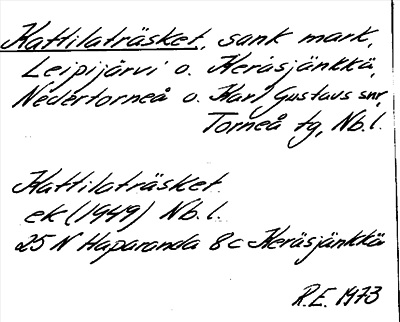 Kattilaträsket, sank mark,
Leipijärvi o. Keräsjänkkä,
Nedertorneå o. Karl Gustavs snr,
Torneå tg, Nb. l.
Kattilaträsket
ek (1949) Nb. l.
25 N Haparanda 8 c Keräsjänkkä
R.E. 1973